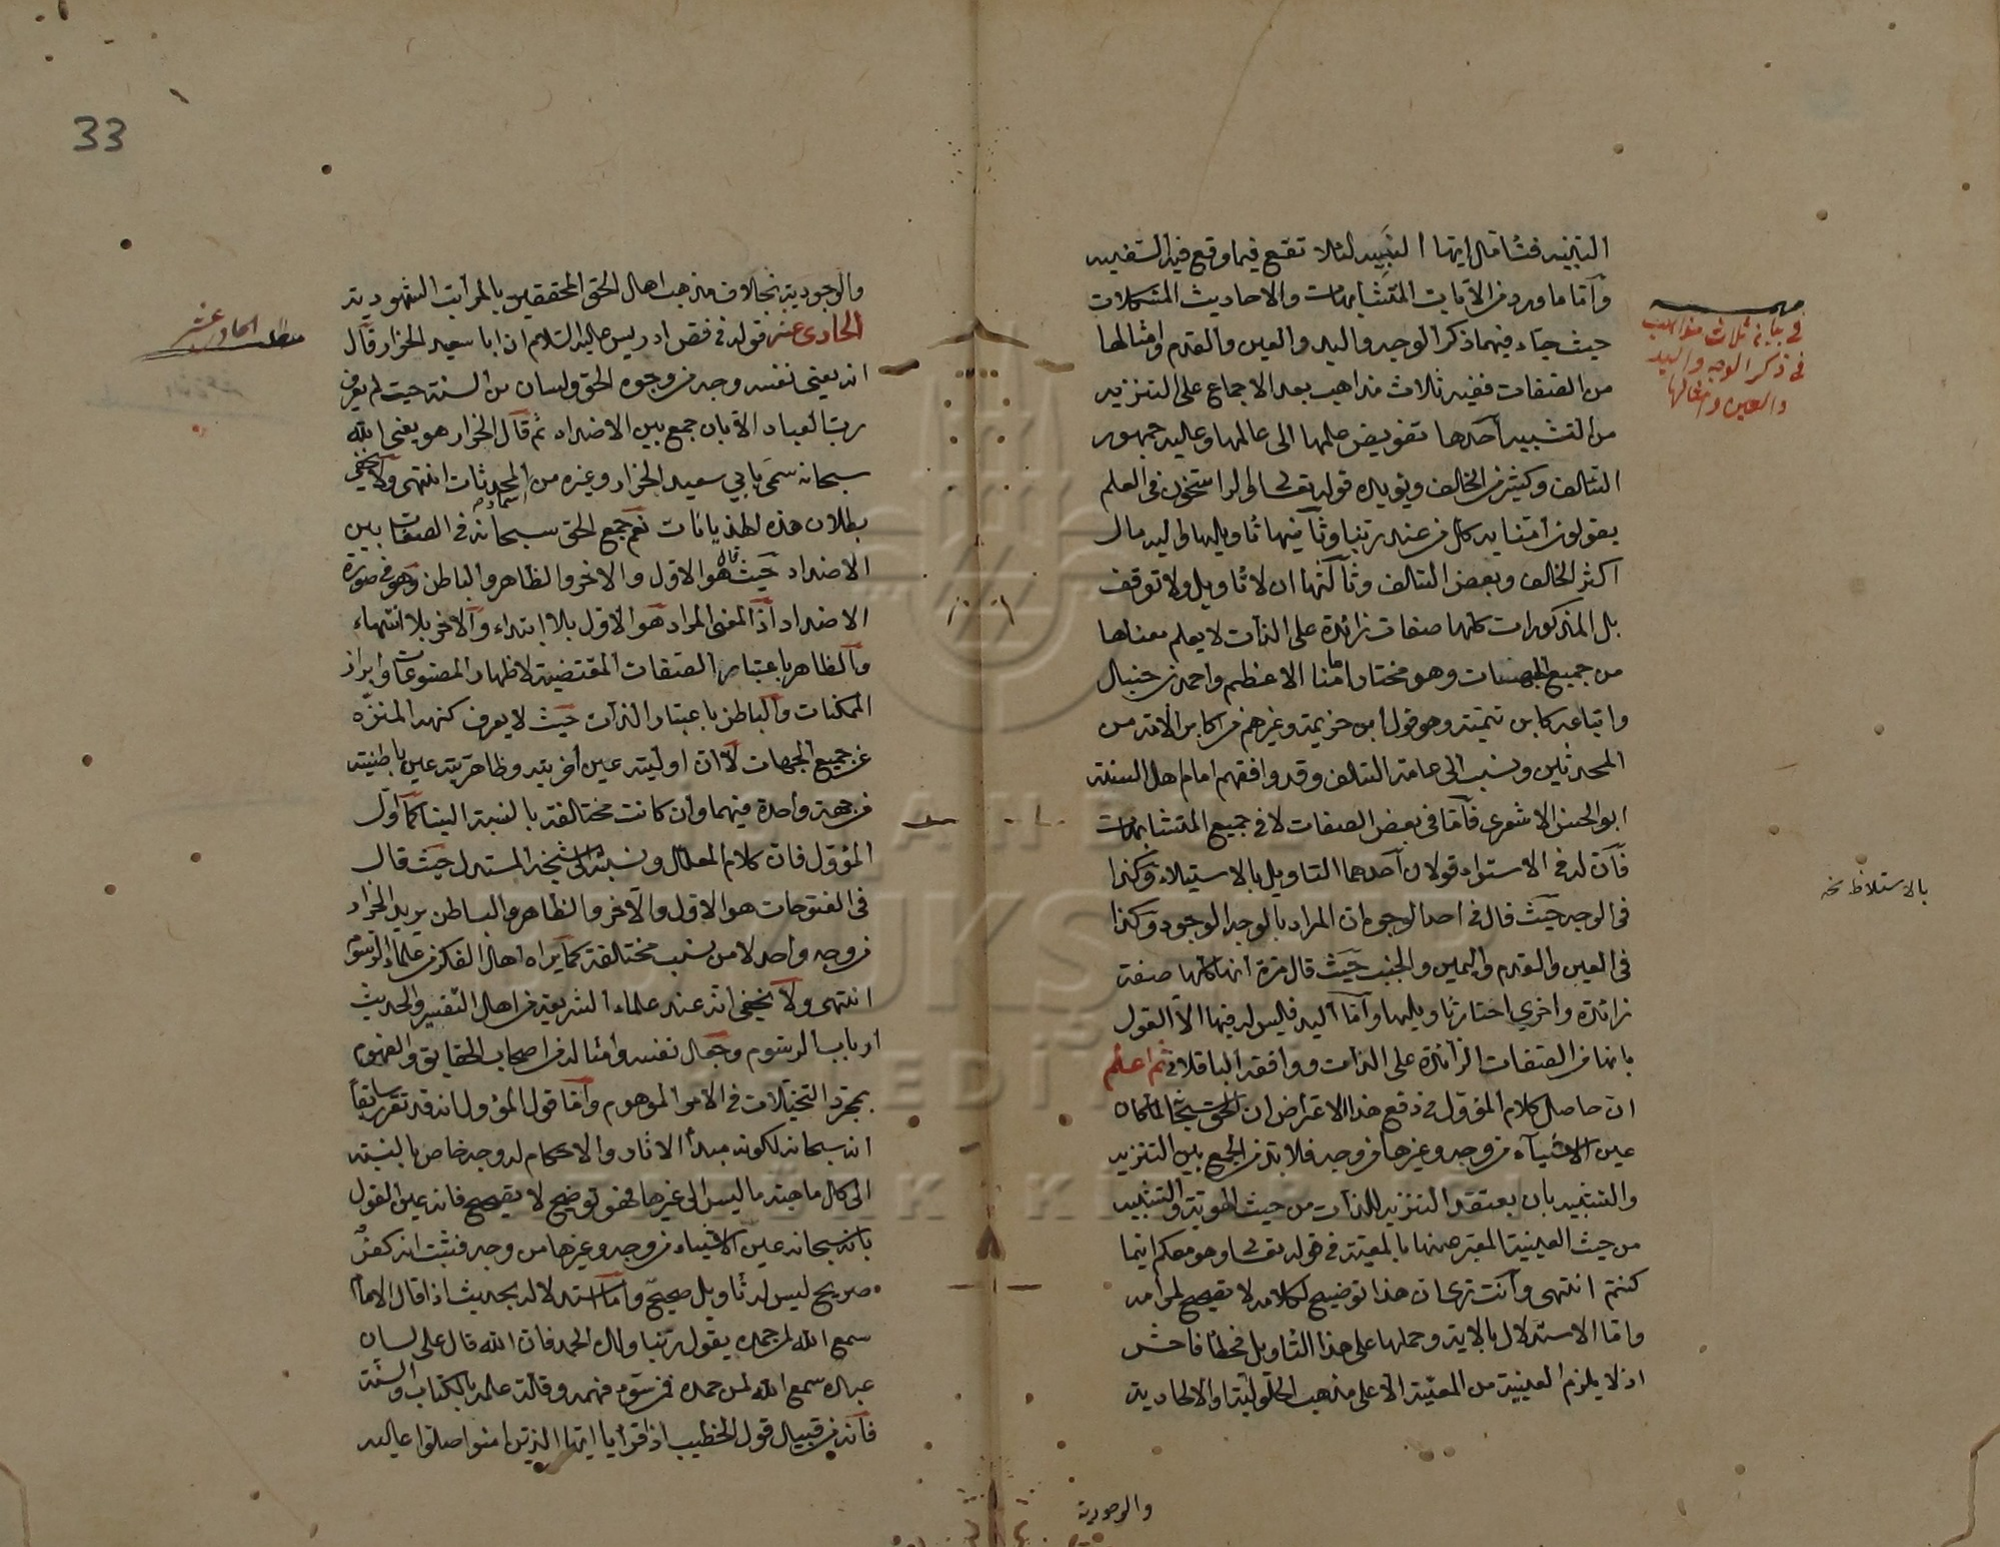 التنبيه فتأمل ايها النبيه لئلا تقع فيما وقع فيه السفيه
وأما ما ورد من الآيات المتشابهات والاحاديث المشكلات
حيث جاء فيهما ذكر الوجه واليد والعين والقدم وامثالها
من الصفات ففيه ثلاث مذاهب بعد الاجماع على التنزيه
من التشبيه أحدها تفويض علمها الى عالمها وعليه جمهور
السلف وكثير من الخلف ويؤيده قوله تعالى والراسخون في العلم
يقولون آمنا به كل من عند ربنا وثانيها تأويلها واليه مال
اكثر الخلف وبعض السلف وثالثها ان لا تأويل ولا توقف
بل المذكورات كلها صفات زائدة على الذات لا يعلم معناها
من جميع الجهات وهو مختار امامنا الاعظم واحمد بن حنبل
واتباعه كابن تيمية وهو قول ابن خزيمة وغيرهم من اكابر الأئمة من
المحدثين ونسب الى عامة السلف وقد وافقهم امام اهل السنة
ابو الحسن الاشعري فأما في بعض الصفات لا في جميع المتشابهات
فأن له في الاستواء قولان أحدهما التأويل بالاستيلاء وكذا
في الوجه حيث قال في احد الوجوه ان المراد بالوجه الوجود وكذا
في العين والقدم واليمين والجنب حيث قال مرة انها كلها صفة
زائدة واخرى اختار تأويلها وأما اليد فليس له فيها الا القول
بانها من الصفات الزائدة على الذات ووافقه الباقلاني ثم اعلم
ان حاصل كلام المؤول في دفع هذا الاعتراض ان الحق سبحانه لما كان
عين الاشياء من وجه وغيرها من وجه فلا بد من الجمع بين التنزيه
والتشبيه بان يعتقد التنزيه للذات من حيث الهوية والتشبيه
من حيث العينية المعبر عنها بالمعية في قوله تعالى وهو معكم اينما
كنتم انتهى وأنت ترى ان هذا توضيح لكلامه لا تصحيح لمرامه
واما الاستدلال بالاية وحملها على هذا التأويل فخطأ فاحش
اذ لا يلزم العينية من المعية الا على مذهب الحلولية والالحادية
والوجودية
مهمه
في بيان ثلاث مذاهب
في ذكر الوجه واليد
والعين وامثالها
نخه
33
والوجودية بخلاف مذهب اهل الحق المحققين بالمراتب الشهودية
الحادي عشر قوله في فص ادريس عليه السلام ان ابا سعيد الخراز قال
انه يعني نفسه وجه من وجوه الحق ولسان من ألسنته حيث لم يعرف
رب العباد الا بان جمع بين الاضداد ثم قال الخراز هو يعني الله
سبحانه سمى بابي سعيد الخراز وغيره من اسماء المحدثات انتهى ولا يخفى
بطلان هذه الهذيانات نعم جمع الحق سبحانه في الصفات بين
الاضداد حيث قال هو الاول والاخر والظاهر والباطن وهو في صورة
الاضداد اذ المعنى المراد هو الاول بلا ابتداء والاخر بلا انتهاء
والظاهر باعتبار الصفات المقتضية لاظهار المصنوعات وابراز
الممكنات والباطن باعتبار الذات حيث لا يعرف كنهه المنزه
عن جميع الجهات لا ان اوليته عين اخريته وظاهريته عين باطنيته
من جهة واحدة فيهما وان كانت مختلفة بالنسبة الينا كما أول
المؤول فان كلام المعلل ونسبته الى شيخه المستدل حيث قال
في الفتوحات هو الاول والاخر والظاهر والباطن يريد الخراز
من وجه واحد لا من نسب مختلفة كما يراه اهل الفكر من علماء الرسوم
انتهى ولا يخفى انه عند علماء الشريعة من اهل التفسير والحديث
ارباب الرسوم وجعل نفسه وامثاله من اصحاب الحقايق والفهوم
بمجرد التخيلات في الامر الموهوم وأما قول المؤول انه قد تقرر سابقا
انه سبحانه لكونه مبدأ الاثار والاحكام له وجه خاص بالنسبة
الى كل ماهية ما ليس الى غيرها فهو توضيح لا تصحيح فانه عين القول
بانه سبحانه عين الاشياء من وجه وغيرها من وجه فثبت انه كفر
صريح ليس له تأويل صحيح وأما استدلاله بحديث اذا قال الامام
سمع الله لمن حمده يقول ربنا ولك الحمد فان الله قال على لسان
عبده سمع الله لمن حمده فمن سوء فهمه وقلة علمه بالكتاب والسنة
فأنه من قبيل قول الخطيب اذا قرأ يا ايها الذين امنوا صلوا عليه
مطلب الحادي عشر